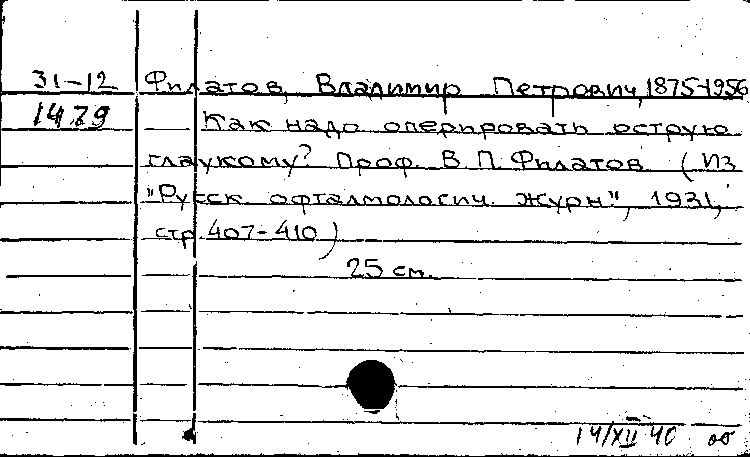 31-12 Филатов, Владимир Петрович, 1875-1956
1479 Как надо оперировать острую
глаукому? Проф. В. П. Филатов (Из
"Русск. офталмологич. журн.", 1931,
стр. 407-410)
25 см.
14/XII 40